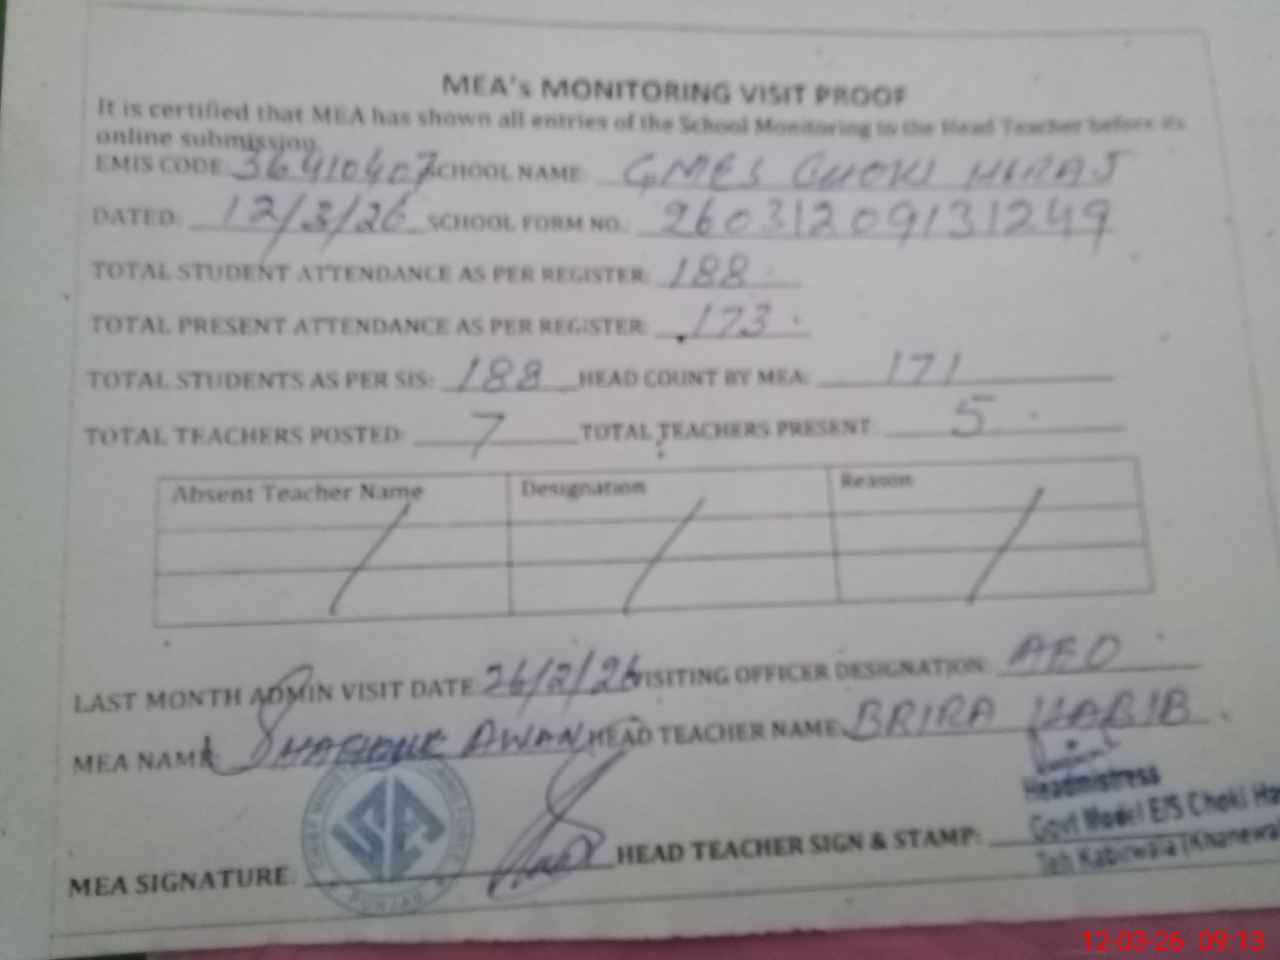 MEA's MONITORING VISIT PROOF
It is certified that MEA has shown all entries of the School Monitoring to the Head Teacher before its
online submission.
EMIS CODE: 36410407 SCHOOL NAME: GMES CHOKI HIRAJ
DATED: 12/3/26 SCHOOL FORM NO.: 26031209131249
TOTAL STUDENT ATTENDANCE AS PER REGISTER: 188
TOTAL PRESENT ATTENDANCE AS PER REGISTER: 173
TOTAL STUDENTS AS PER SIS: 188 HEAD COUNT BY MEA: 171
TOTAL TEACHERS POSTED: 7 TOTAL TEACHERS PRESENT: 5
Absent Teacher Name Designation Reason
LAST MONTH ADMIN VISIT DATE: 26/2/26 VISITING OFFICER DESIGNATION: AEO
MEA NAME: AWAN HEAD TEACHER NAME: BRIRA HABIB
Headmistress
Govt Model E/S Choki
MEA SIGNATURE: HEAD TEACHER SIGN & STAMP:
Teh Kabirwala (Khanewa
PUNJAB
12-03-26 09:13